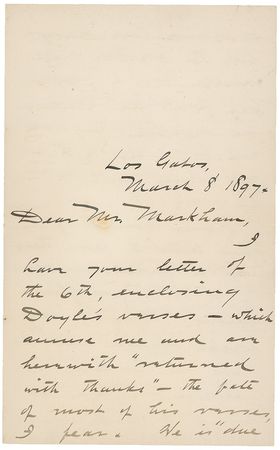 Los Gatos,
March 8 1897.
Dear Mr. Markham,
I
have your letter of
the 6th, enclosing
Doyle's verses – which
amuse me and are
herewith "returned
with thanks" – the fate
of most of his verses,
I fear. He is "due